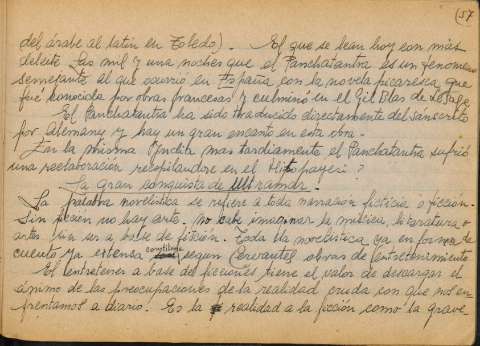 (57
del árabe al latín en Toledo). El que se lean hoy con más
deleite Las mil y una noches que el Panchatantra es un fenómeno
semejante al que ocurrió en España con la novela picaresca que
fué conocida por obras francesas y culminó en el Gil Blas de Lesage.
El Panchatantra ha sido traducido directamente del sanscrito
por Alemany y hay un gran encanto en esta obra.
En la misma más tardiamente el Panchatantra sufrió
una reelaboración recopilandose en el ?
La gran conquista de Ultramar.
La palabra novelística se refiere a toda narración ficticia o ficción.
Sin ficción no hay arte. No cabe imaginar la música, literatura o
artes sin ser a base de ficción. Toda la novelística ya en forma de
cuento ya extensa constituye segun Cervantes obras de entretenimiento
El entretener a base de ficciones tiene el valor de descargar el
ánimo de las preocupaciones de la realidad cruda con que nos en-
frentamos a diario. Es la realidad a la ficción como la grave